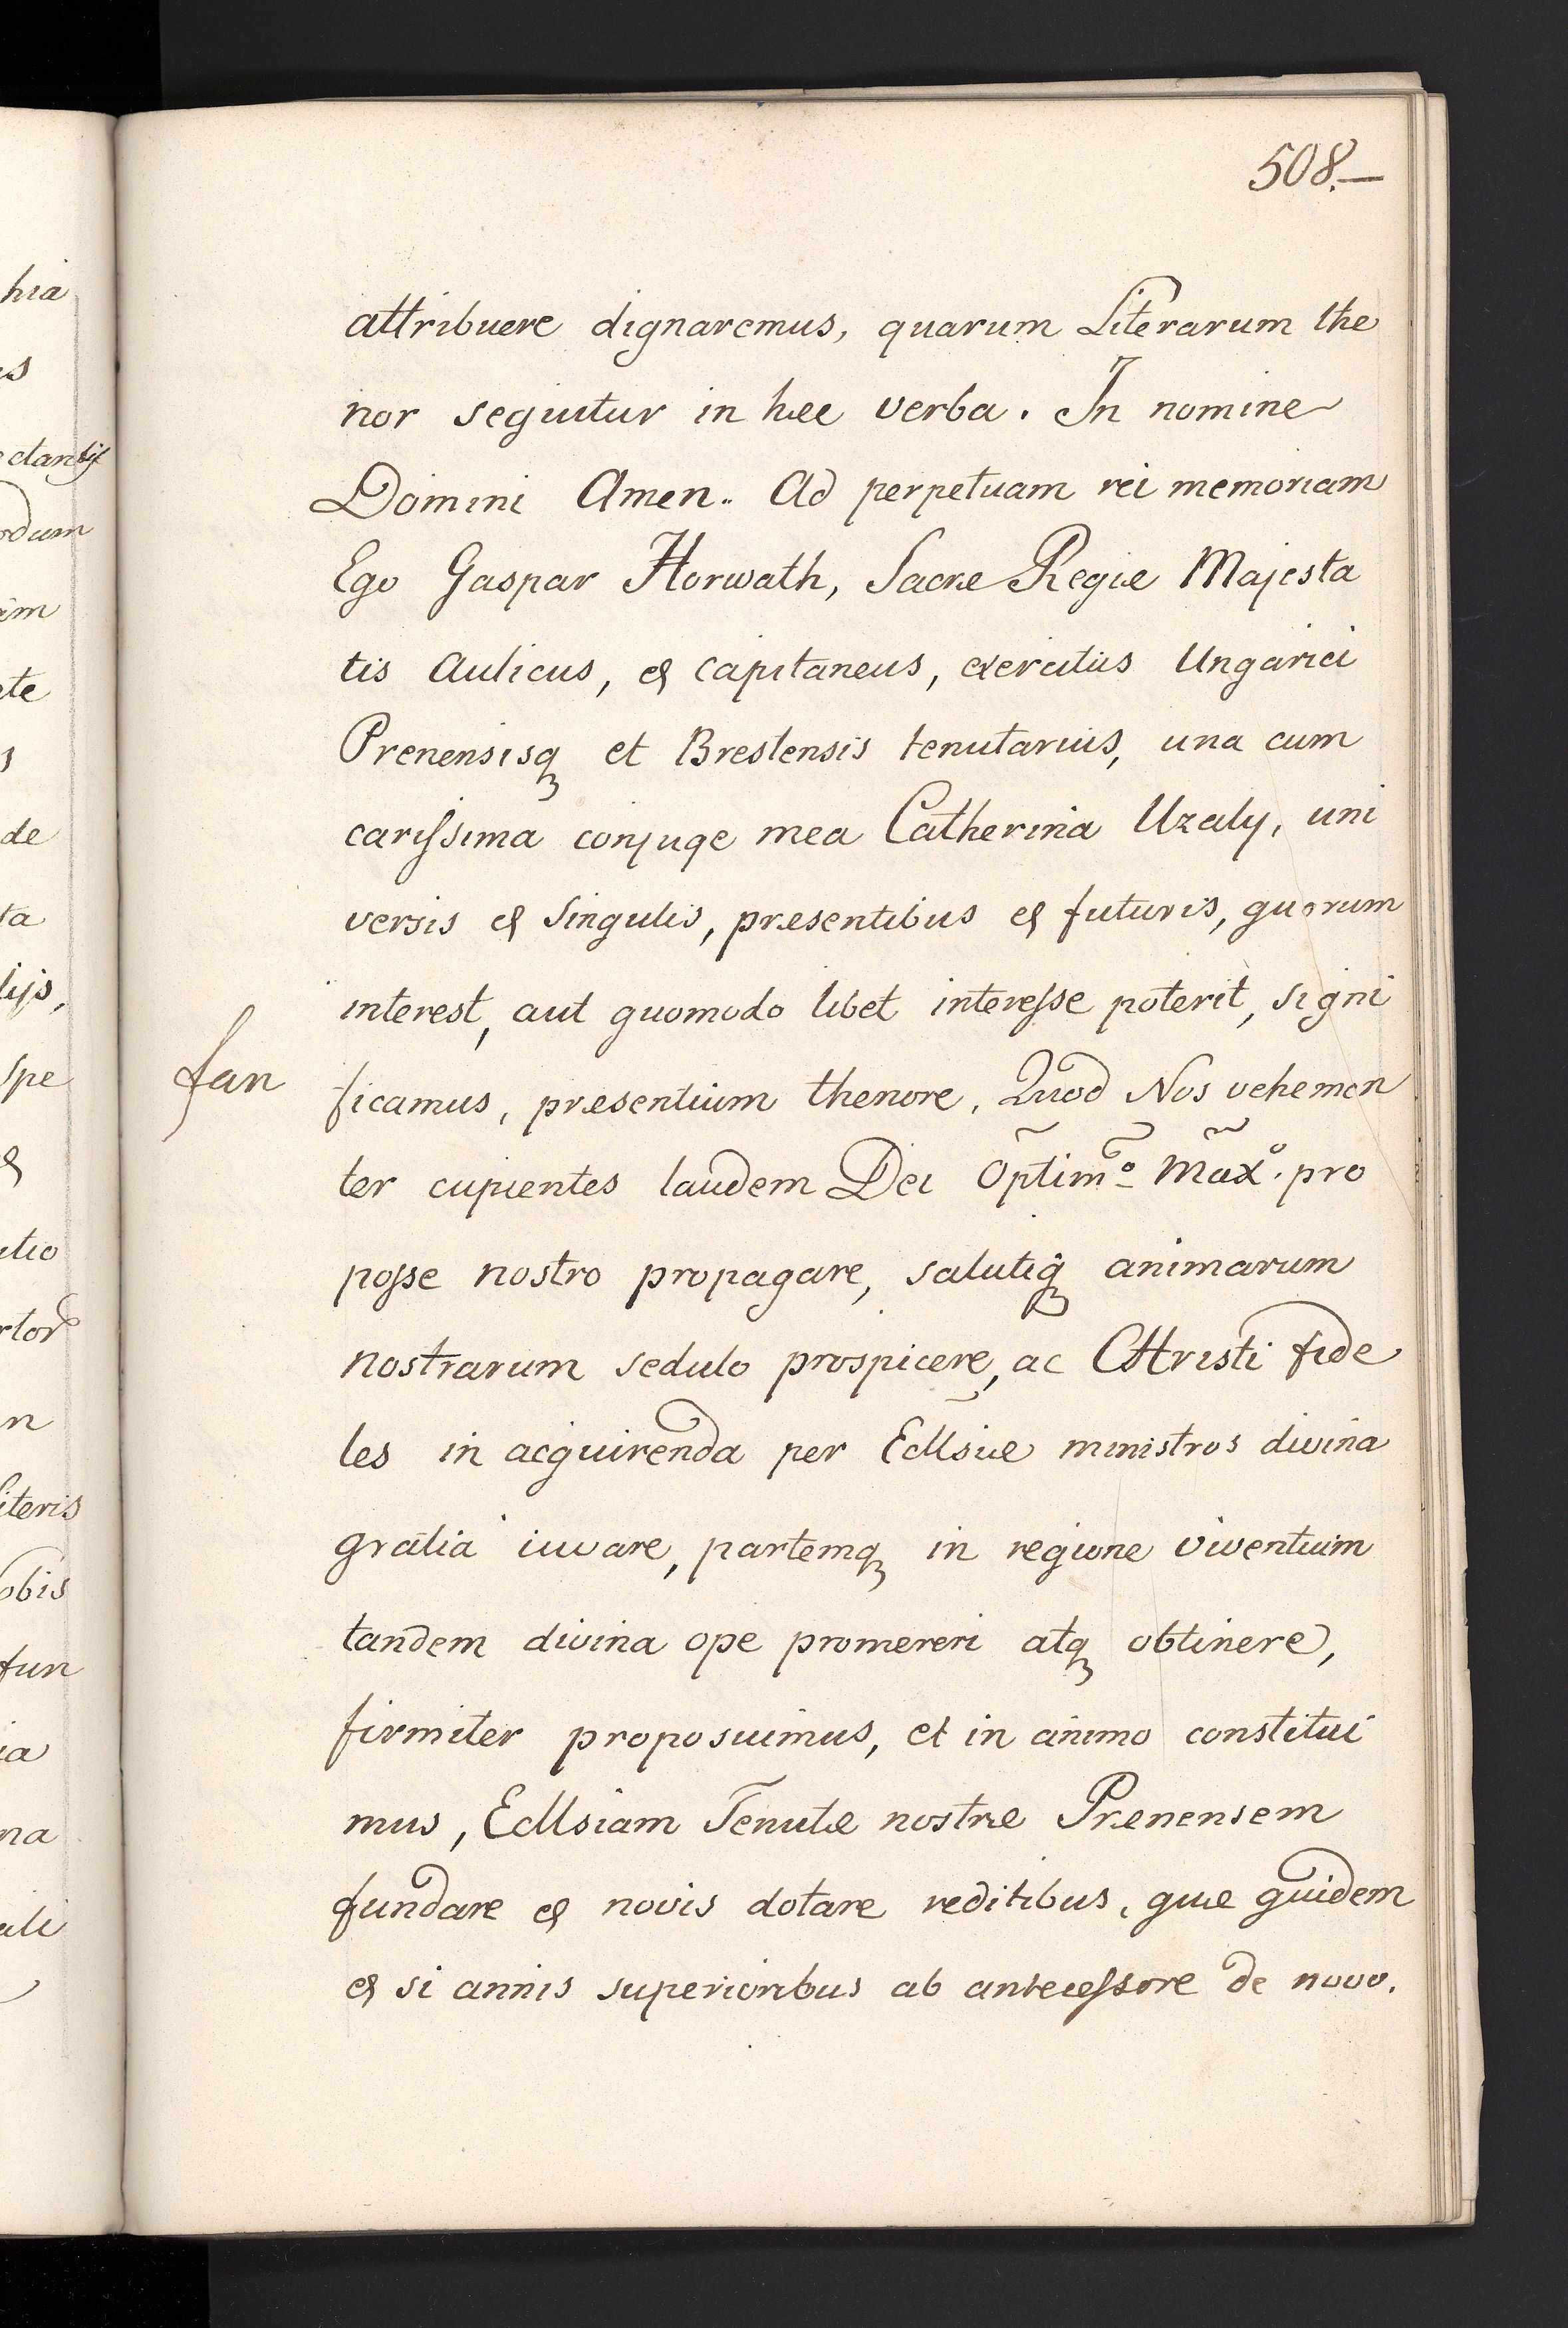 508.—
attribuere dignaremus, quarum Literarum the
nor sequitur in hæc verba. In nomine
Domini Amen.. Ad perpetuam rei memoriam
Ego Gaspar Horwath, Sacræ Regiæ Majesta
tis Aulicus, et capitaneus, exercitus Ungarici
Prenensisq et Brestensis tenutarius, una cum
carissima conjuge mea Catherina Uzaly, uni
versis et Singulis, præsentibus et futuris, quorum
interest, aut quomodo libet interesse poterit, signi
fan
ficamus, præsentium thenore, Quod Nos vehemen
ter cupientes laudem Dei Optim̃o Max̃o. pro
posse nostro propagare, salutiq animarum
nostrarum sedulo prospicere, ac CHristi fide
les in acquirenda per Ecllsiæ ministros divina
gratia iuvare, partemq in regione viventium
tandem divina ope promereri atq obtinere,
firmiter proposuimus, et in animo constitui
mus, Ecllsiam Tenutæ nostræ Prænensem
fundare et novis dotare reditibus, quæ quidem
et si annis superioribus ab antecessore de novo.
hia
es
ctantis
odum
am
ete
s
de
ta
lijs,
spe
et
utio
rtor
n
literis
obis
fun
ia
na
uli